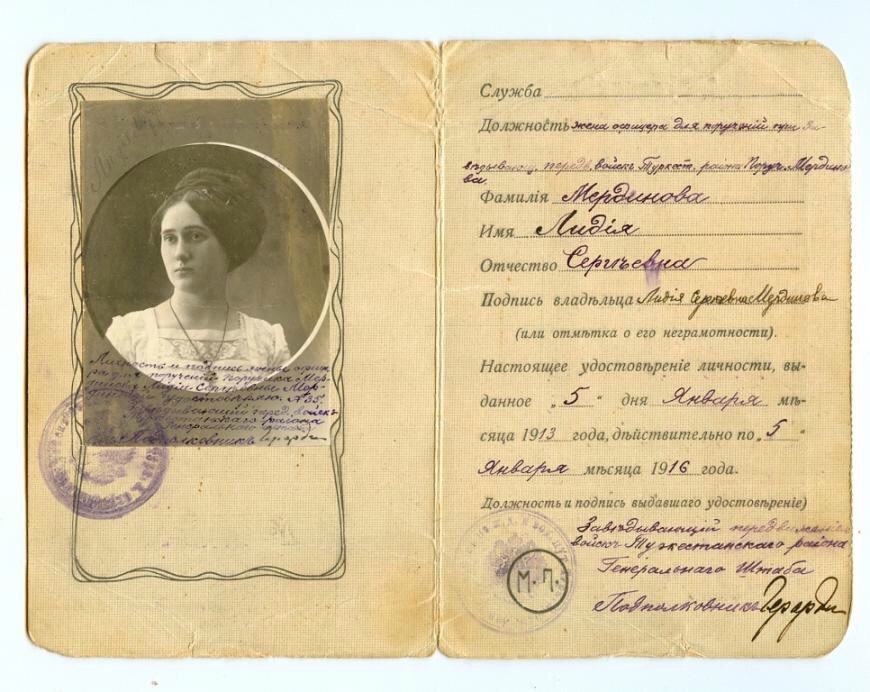 Личность и подпись жены офице
ра для поручений Поручика Мер
динова Лидіи Сергѣевны Мер
диновой удостовѣряю. № 35.
Завѣдывающій перед. войскъ
Туркестанскаго района
Генеральнаго Штаба
Подполковникъ Герарди
Служба
Должность жена офицера для порученій при За
вѣдывающ. передв. войскъ Туркест. района Поруч. Мердино
ва.
Фамилія Мердинова
Имя Лидія
Отчество Сергѣевна
Подпись владѣльца Лидія Сергѣевна Мердинова
(или отмѣтка о его неграмотности).
Настоящее удостовѣреніе личности, вы-
данное „5“ дня Января мѣ-
сяца 1913 года, дѣйствительно по „5“
Января мѣсяца 1916 года.
Должность и подпись выдавшаго удостовѣреніе)
Завѣдывающій передвиженіемъ
войскъ Туркестанскаго района
Генеральнаго Штаба
М. П.
Подполковникъ Герарди